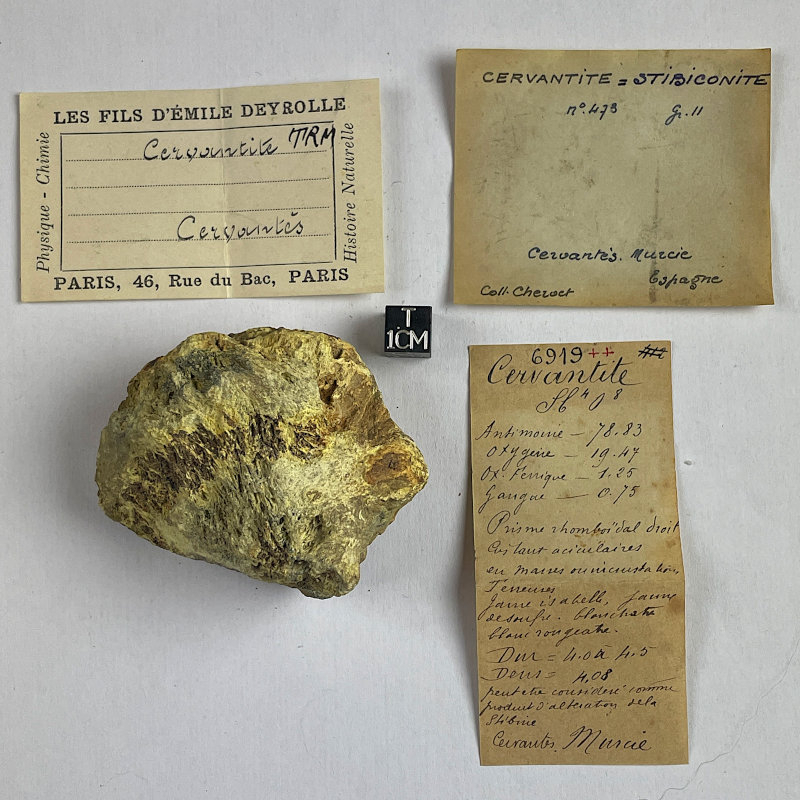 LES FILS D'ÉMILE DEYROLLE
Physique - Chimie
Cervantite TRM
Cervantès
Histoire Naturelle
PARIS, 46, Rue du Bac, PARIS
CERVANTITE = STIBICONITE
n°. 473 Gr. 11
Cervantès. Murcie
Espagne
Coll. Chervet
T
1CM
6919 ++
Cervantite
Sb⁴O⁸
Antimoine — 78.83
Oxygène — 19.47
Ox. Ferrique — 1.25
Gangue — 0.75
Prisme rhomboïdal droit
Cristaux aciculaires
en masses ou incrustations,
Terreuses
Jaune isabelle, jaune
de soufre. blanchatre
blanc rougeatre.
Dur = 4.0 à 4.5
Dens = 4,08
peut etre consideré comme
produit d'alteration de la
Stibine
Cervantes. Murcie